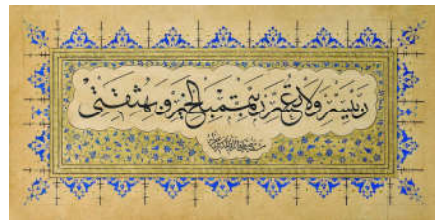 رب يسر ولا تعسر رب تمم بالخير وبه ثقتي